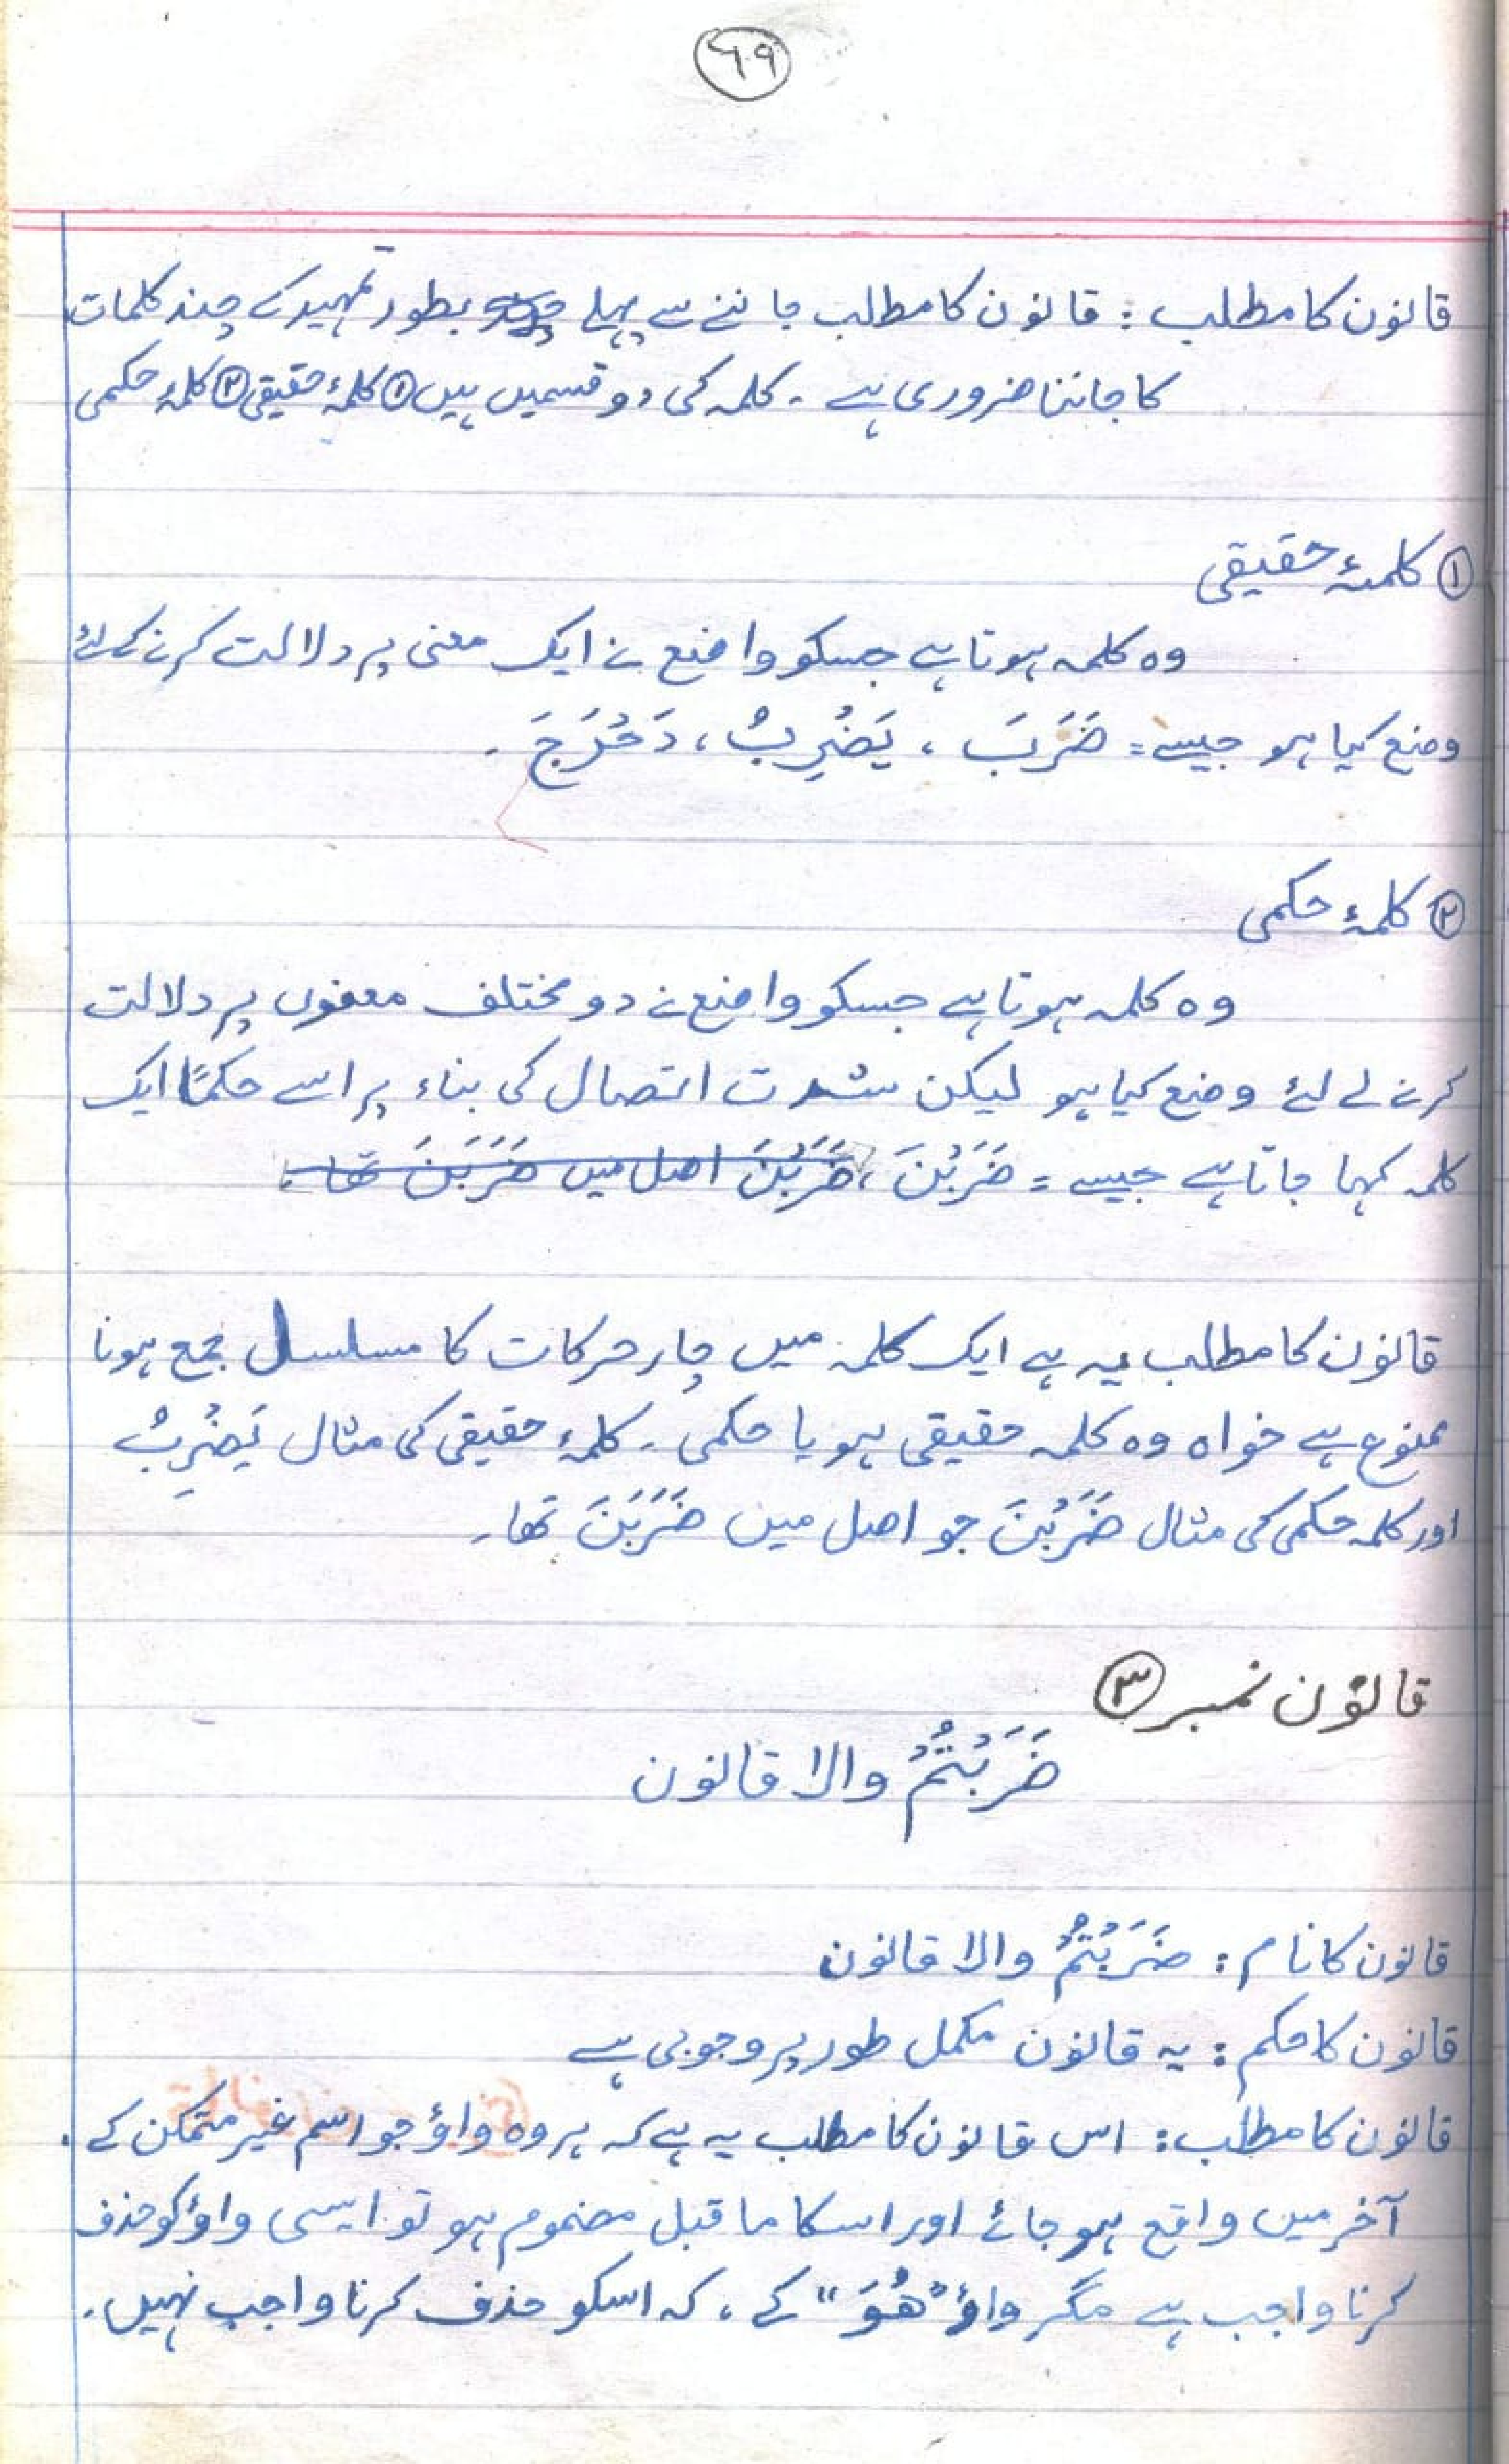 ۶۹
قانون کا مطلب : قانون کا مطلب جاننے سے پہلے بطور تمہید کے چند کلمات
کا جاننا ضروری ہے ۔ کلمہ کی دو قسمیں ہیں ① کلمۂ حقیقی ② کلمۂ حکمی
① کلمۂ حقیقی
وہ کلمہ ہوتا ہے جسکو واضع نے ایک معنی پر دلالت کرنے کے لئے
وضع کیا ہو جیسے = ضَرَبَ ، یَضْرِبُ ، دَحْرَجَ ۔
② کلمۂ حکمی
وہ کلمہ ہوتا ہے جسکو واضع نے دو مختلف معنوں پر دلالت
کرنے لے لئے وضع کیا ہو لیکن شدت اتصال کی بناء پر اسے حکمًا ایک
کلمہ کہا جاتا ہے جیسے = ضَرَبْنَ ، ضَرَبْنَ اصل میں ضَرَبَنَ تھا ۔
قانون کا مطلب یہ ہے ایک کلمہ میں چار حرکات کا مسلسل جمع ہونا
ممنوع ہے خواہ وہ کلمہ حقیقی ہو یا حکمی ۔ کلمۂ حقیقی کی مثال یَضْرِبُ
اور کلمہ حکمی کی مثال ضَرَبْنَ جو اصل میں ضَرَبَنَ تھا ۔
قانون نمبر ③
ضَرَبْتُمْ والا قانون
قانون کا نام : ضَرَبْتُمْ والا قانون
قانون کا حکم : یہ قانون مکمل طور پر وجوبی ہے
قانون کا مطلب : اس قانون کا مطلب یہ ہے کہ ہر وہ واؤ جو اسم غیر متمکن کے
آخر میں واقع ہو جائے اور اسکا ما قبل مضموم ہو تو ایسی واؤ کو حذف
کرنا واجب ہے مگر واؤ "ھُوَ" کے ، کہ اسکو حذف کرنا واجب نہیں ۔